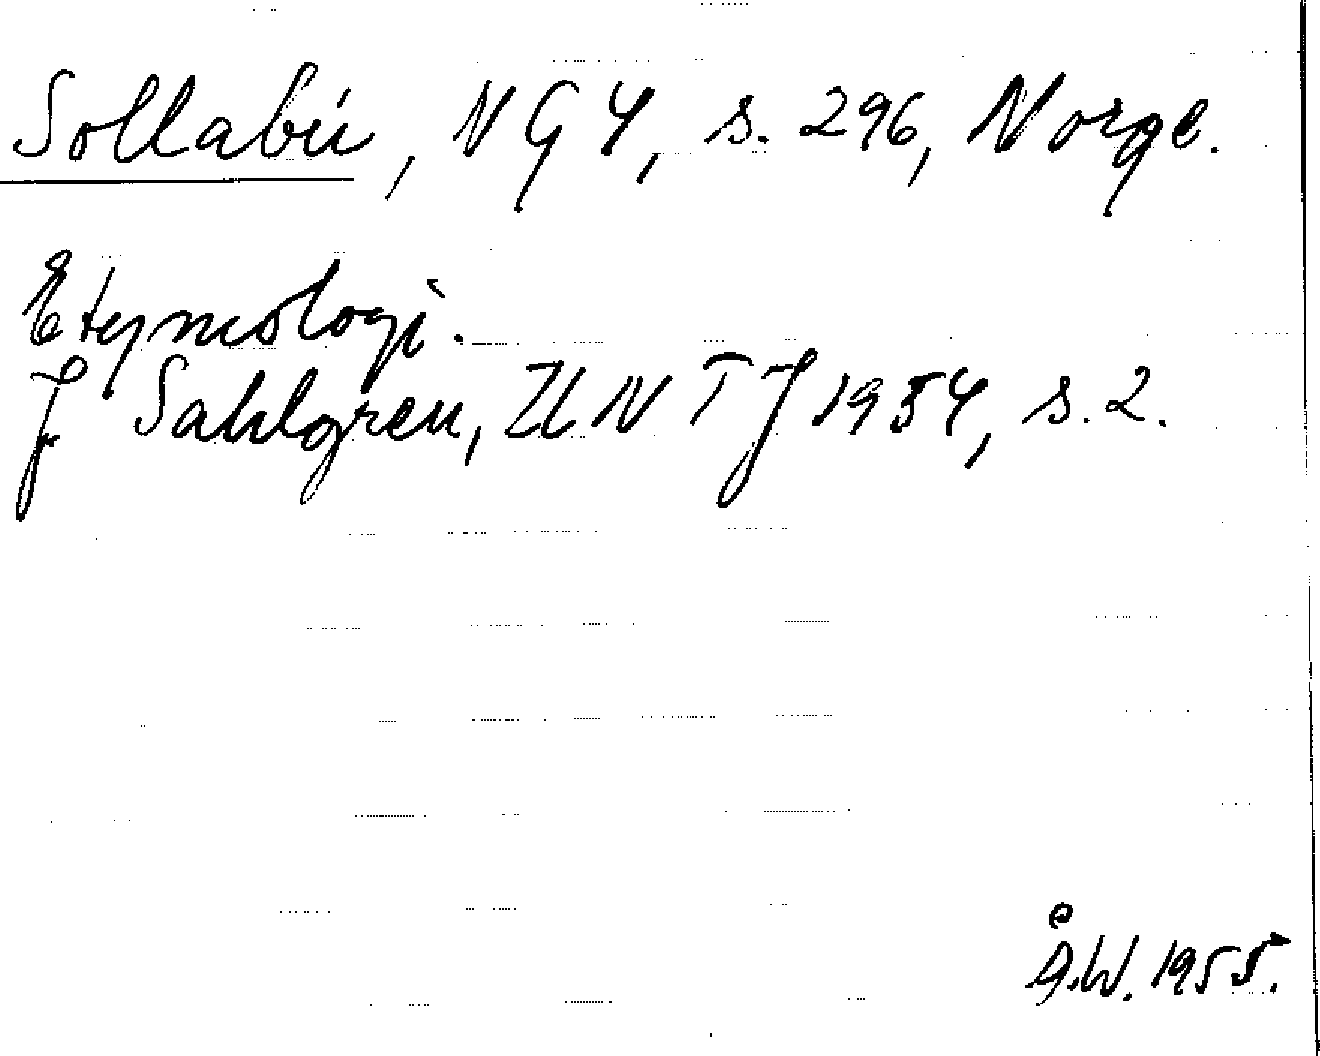 Sollabú, NG 4, s. 296, Norge.
Etymologi.
J Sahlgren, UNTJ 1954, s. 2.
Å.W. 1955.